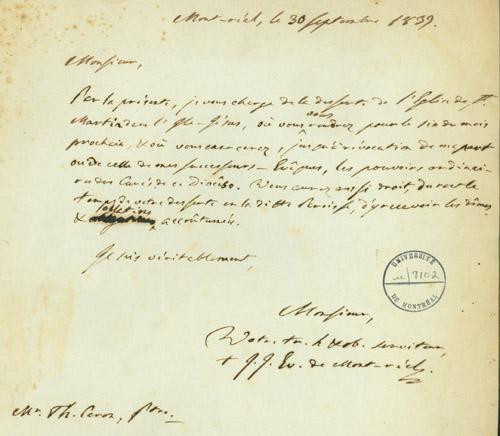 Mont-réal, le 30 septembre 1839.
Monsieur,
Par la présente, je vous charge de la desserte de l'Eglise de St.
Martin dans l'Isle-Jésus, où vous vous rendrez pour le six du mois
prochain, & où vous exercerez, jusqu'à révocation de ma part
ou de celle de mes successeurs-Evêques, les pouvoirs ordinai-
res des Curés de ce Diocèse. Vous aurez aussi droit durant le
temps de votre desserte en la ditte Paroisse, d'y recevoir les dîmes
& oblations accoûtumés.
Je suis véritablement,
Monsieur,
Votre tr. h. & ob. serviteur,
+ J. J. Ev. de Mont-réal.
Mr. Th. Caron, ptre.
UNIVERSITÉ
7102
DE MONTRÉAL